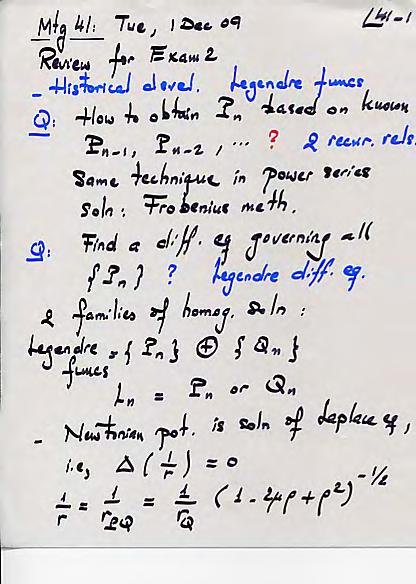 Mtg 41: Tue, 1 Dec 09 L41-1
Review for Exam 2
- Historical devel. Legendre funcs
Q: How to obtain Pn based on known
Pn-1, Pn-2, ... ? 2 recur. rels.
Same technique in power series
soln: Frobenius meth.
Q: Find a diff. eq governing all
{Pn} ? Legendre diff. eq.
2 families of homog. soln:
Legendre = {Pn} ⊕ {Qn}
funcs
Ln = Pn or Qn
- Newtonian pot. is soln of Laplace eq,
i.e, Δ(1/r) = 0
1/r = 1/rPQ = 1/rQ (1 - 2μρ + ρ²)^-1/2